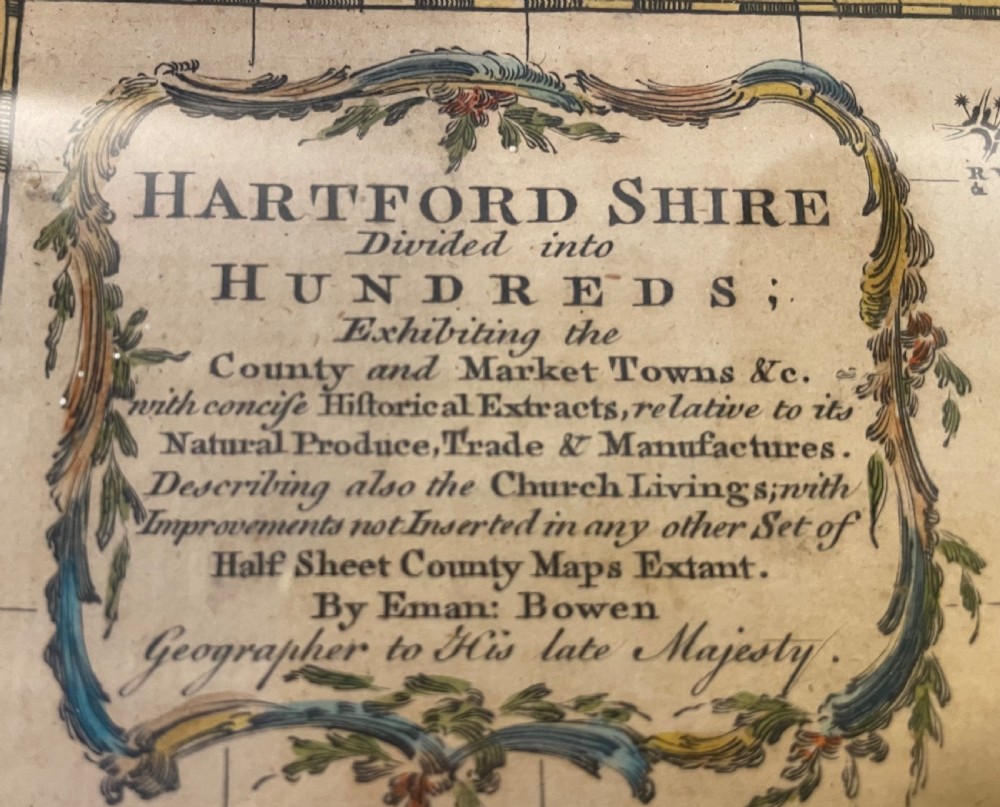 HARTFORD SHIRE
Divided into
HUNDREDS;
Exhibiting the
County and Market Towns &c.
with conciſe Hiſtorical Extracts, relative to its
Natural Produce, Trade & Manufactures.
Describing also the Church Livings; with
Improvements not Inserted in any other Set of
Half Sheet County Maps Extant.
By Eman: Bowen
Geographer to His late Majesty.